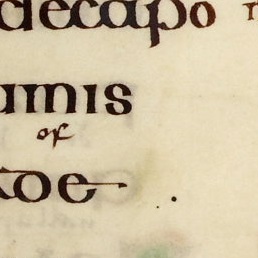 decapo
umis
of
de